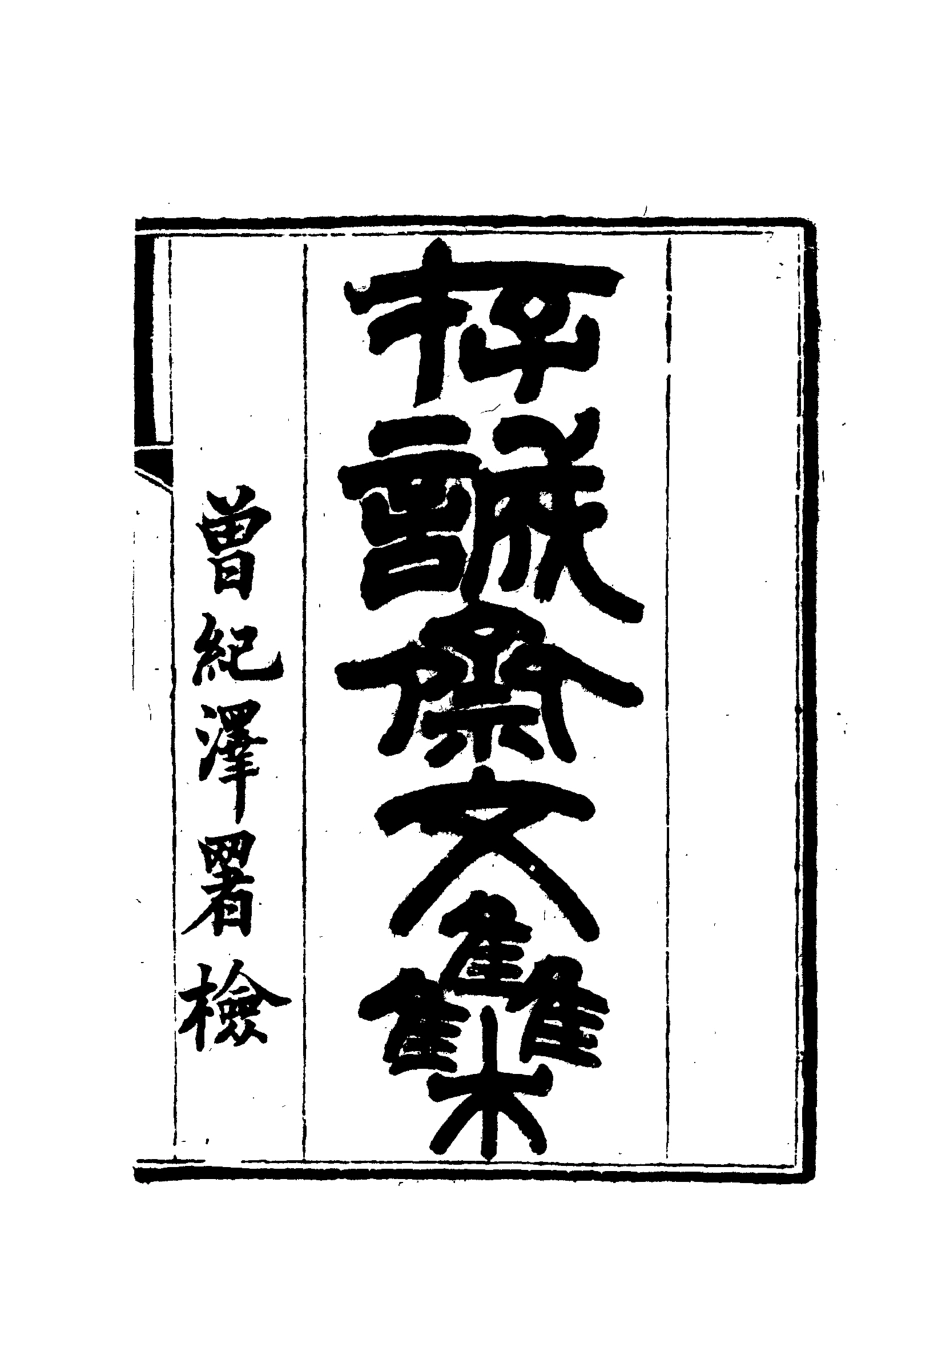 存誠齋文雧
曾紀澤署檢